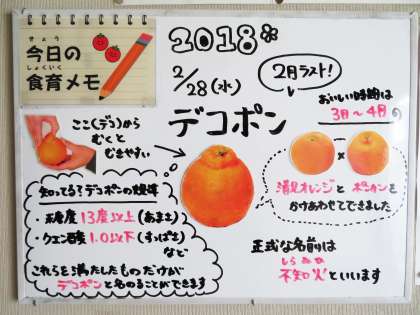 きょう
今日の
しょくいく
食育メモ
2018*
2/28(水)
2月ラスト!
おいしい時期は
3月～4月の
デコポン
ここ(デコ)から
むくと
むきやすい
×
清見オレンジとポンカンを
かけあわせてできました
知ってる?デコポンの基準
・糖度13度以上(あまさ)
・クエン酸1.0以下(すっぱさ)
など
これらを満たしたものだけが
デコポンと名のることができます
正式な名前は
しらぬひ
不知火といいます